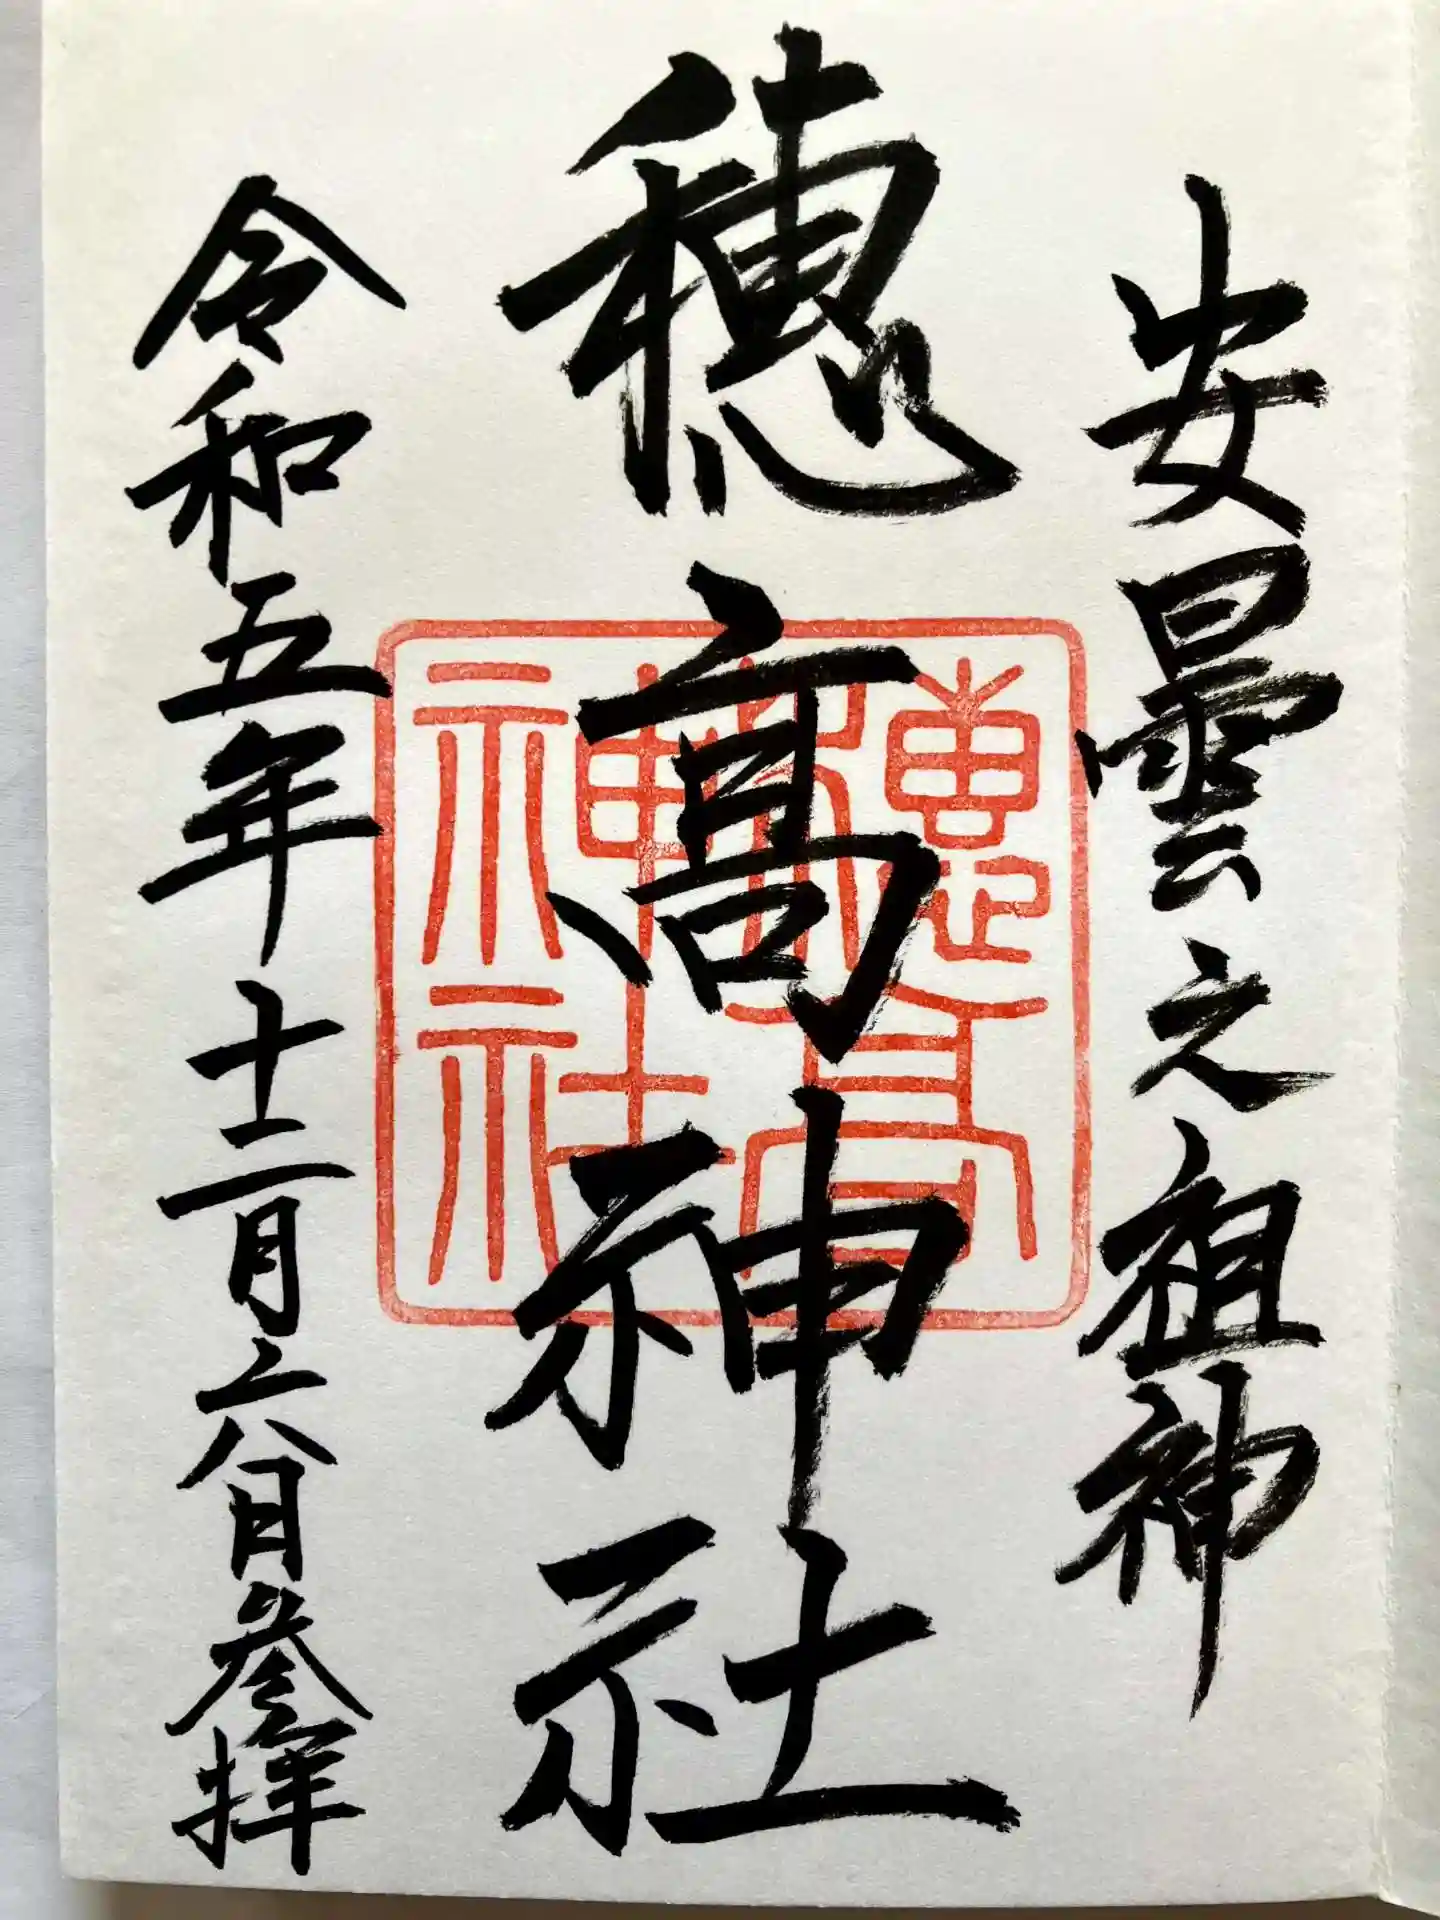 安曇之祖神
穂髙神社
令和五年十二月六日参拝
穗高神社